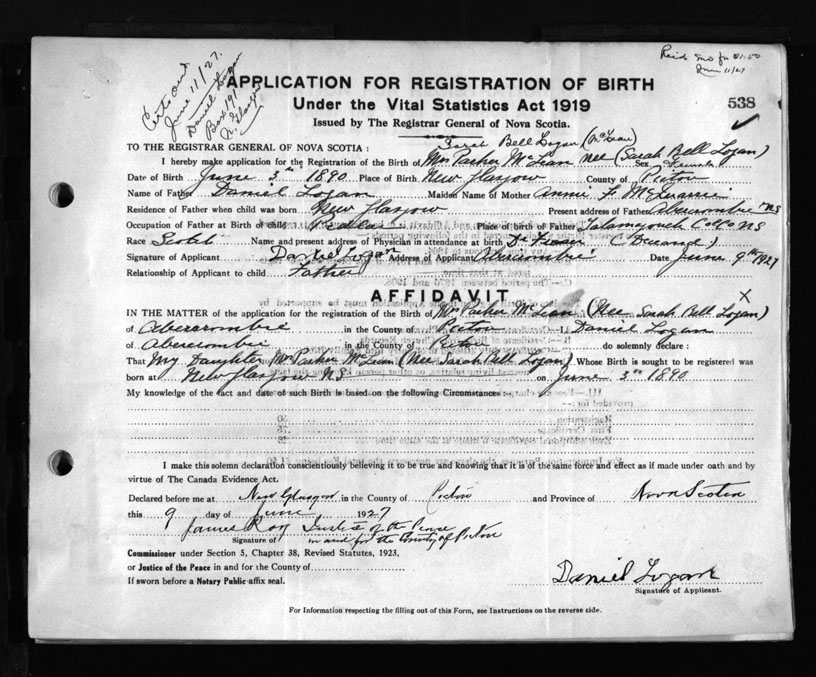 Certs out
June 11/27.
Daniel Logan
Box 191
N. Glasgow
Rec'd M.O. for $1.00
June 11/27
APPLICATION FOR REGISTRATION OF BIRTH
Under the Vital Statistics Act 1919
538
Issued by The Registrar General of Nova Scotia.
Sarah Bell Logan (McLean)
TO THE REGISTRAR GENERAL OF NOVA SCOTIA :
I hereby make application for the Registration of the Birth of Mrs Parker McLean nee (Sarah Bell Logan)
Date of Birth June 3rd 1890 Place of Birth New Glasgow County of Pictou Sex Female
Name of Father Daniel Logan Maiden Name of Mother Annie F
Residence of Father when child was born New Glasgow Present address of Father Abercrombie NS
Occupation of Father at Birth of child Pedlar Place of birth of Father Tatamagouch Col Co NS
Race Scotch Name and present address of Physician in attendance at birth Dr Fraser (Deceased)
Signature of Applicant Daniel Logan Address of Applicant Abercrombie Date June 9th 1927
Relationship of Applicant to child Father
AFFIDAVIT
X
IN THE MATTER of the application for the registration of the Birth of Mrs Parker McLean (Nee Sarah Bell Logan)
of Abercrombie in the County of Pictou I Daniel Logan
of Abercrombie in the County of Pictou do solemnly declare :
That My Daughter Mrs Parker McLean (Nee Sarah Bell Logan) Whose Birth is sought to be registered was
born at New Glasgow NS on June 3rd 1890
My knowledge of the fact and date of such Birth is based on the following Circumstances :
I make this solemn declaration conscientiously believing it to be true and knowing that it is of the same force and effect as if made under oath and by
virtue of The Canada Evidence Act.
Declared before me at New Glasgow in the County of Pictou and Province of Nova Scotia
this 9 day of June 1927
James Roy Justice of the Peace
Signature of in and for the County of Pictou
Commissioner under Section 5, Chapter 38, Revised Statutes, 1923,
or Justice of the Peace in and for the County of
If sworn before a Notary Public affix seal.
Daniel Logan
Signature of Applicant.
For Information respecting the filling out of this Form, see Instructions on the reverse side.